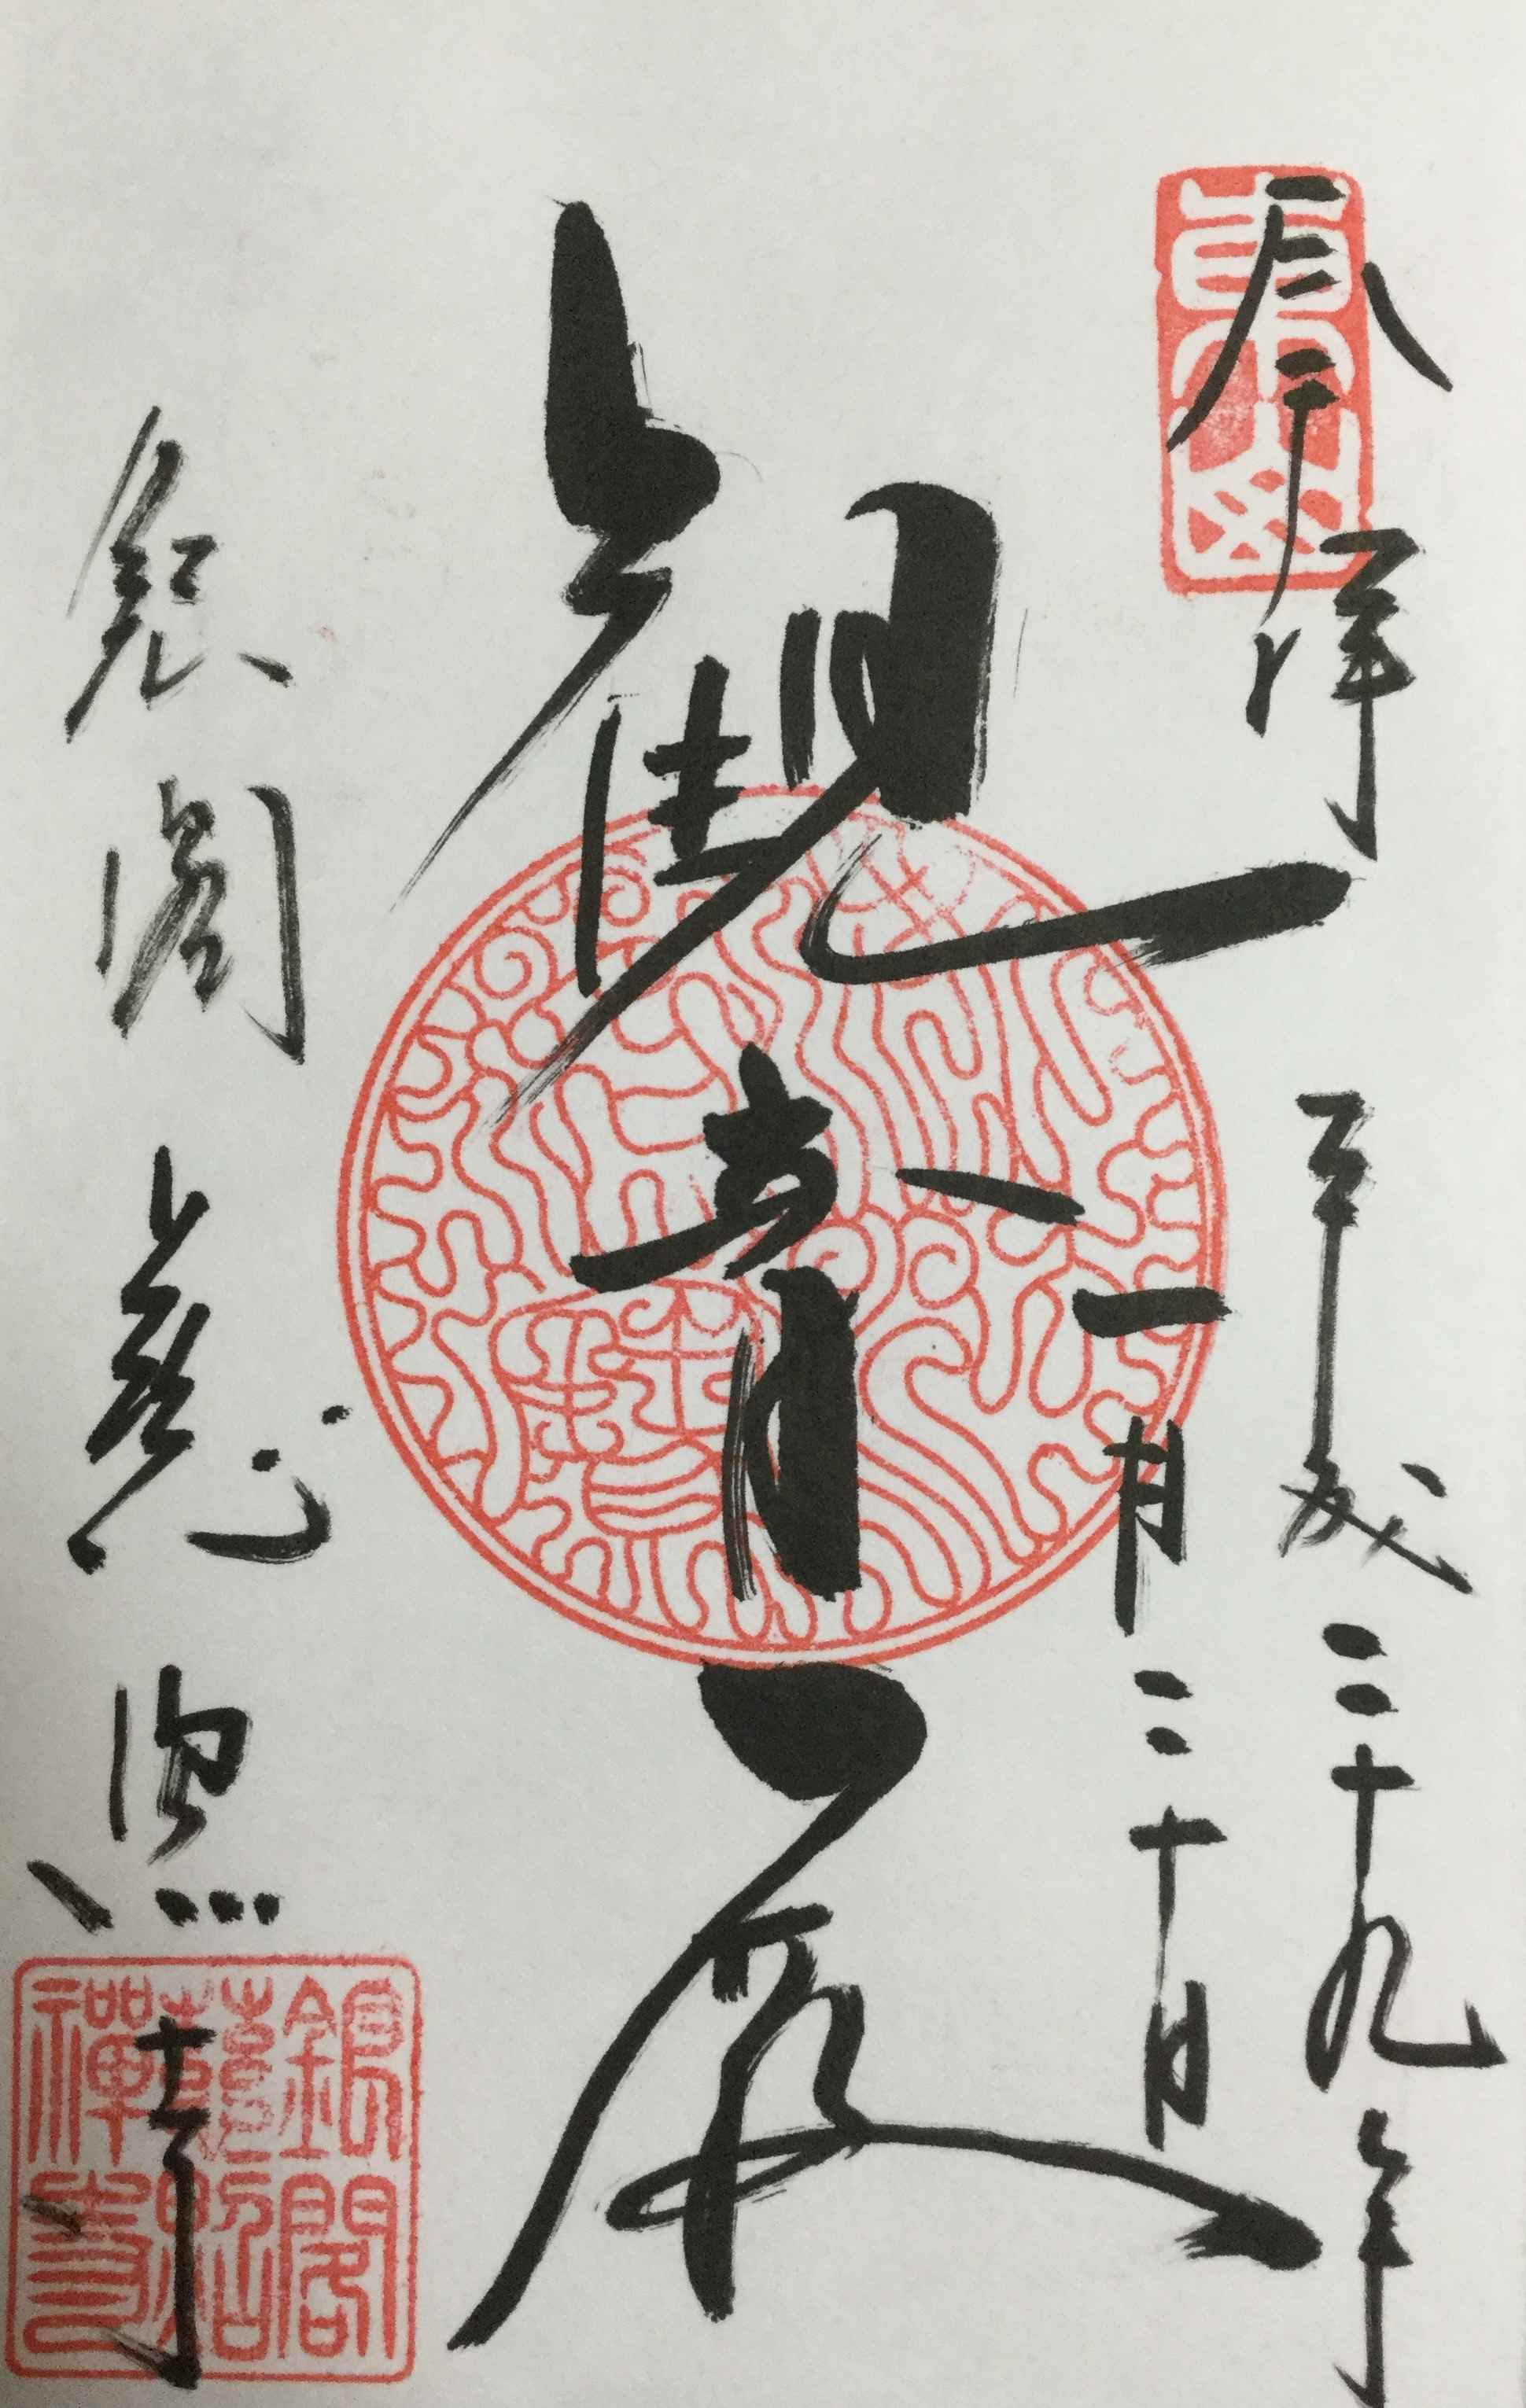 奉拝
平成二十九年
一月二十日
観音殿
銀閣慈照寺
東山
銀閣
慈照
禅寺